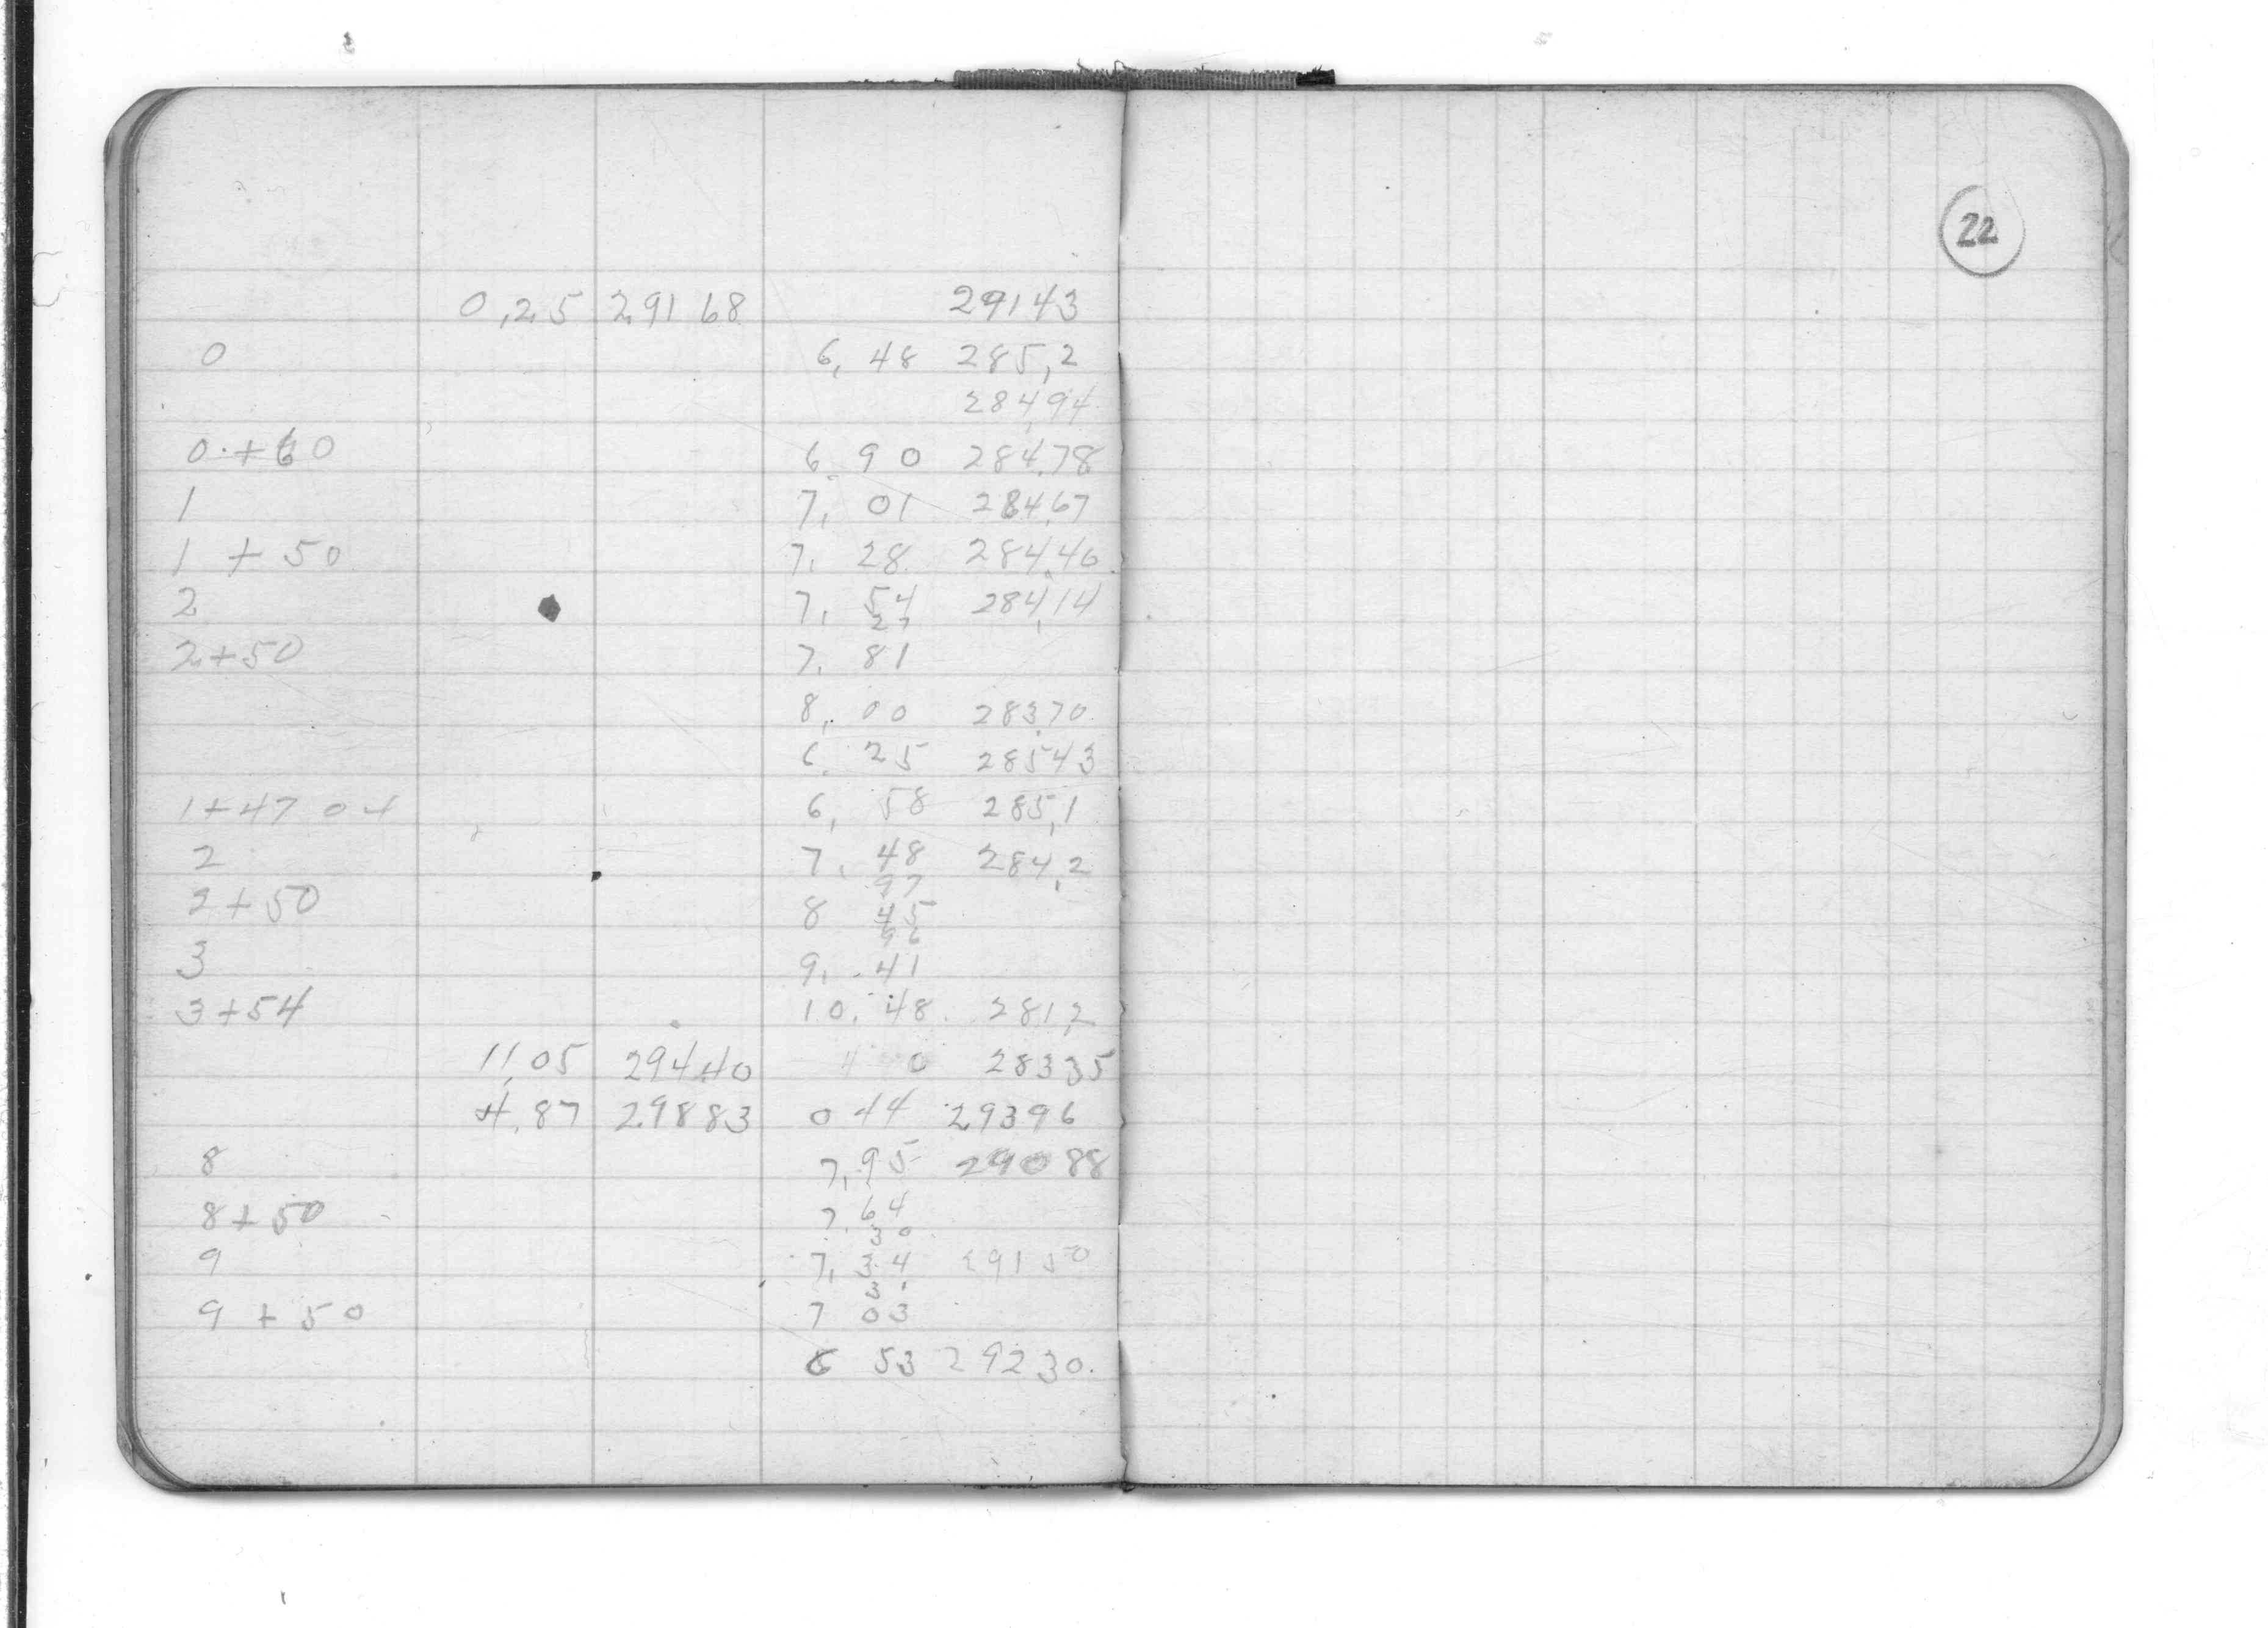 22
0,25 291 68 29143
0 6, 48 285,2
284,94
0.+60 6. 90 284.78
1 7, 01 284.67
1 + 50 7. 28 284.40
2 7, 54 284,14
27
2+50 7. 81
8, 00 283.70
6. 25 28543
1+47 6, 58 285,1
2 7, 48 284,2
97
2+50 8 45
96
3 9, 41
3+54 10, 48 281,2
11,05 29440 0 28335
4,87 29883 0 44 29396
8 7,95 29088
8+50 7. 64
30
9 7, 34 29150
31
9 + 50 7 03
6 53 29230.